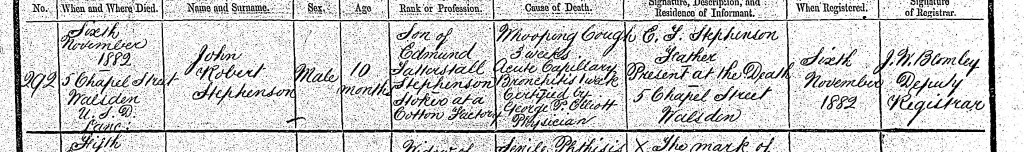 No. When and Where Died. Name and Surname. Sex. Age Rank or Profession. Cause of Death. Signature, Description, and Residence of Informant. When Registered. Signature of Registrar.
292
Sixth
November
1882
5 Chapel Street
Walsden
U. S. D.
Lanc:
John
Robert
Stephenson
Male
10
months
Son of
Edmund
Tatterstall
Stephenson
Stoker at a
Cotton Factory
Whooping Cough
3 weeks
Acute Capillary
Bronchitis 1 week
Certified by
George P. Elliott
Physician
E. T. Stephenson
Father
Present at the Death
5 Chapel Street
Walsden
Sixth
November
1882
J. W. Blomley
Deputy
Registrar
Fifth
Widow of
Senile Phthisis
X The mark of